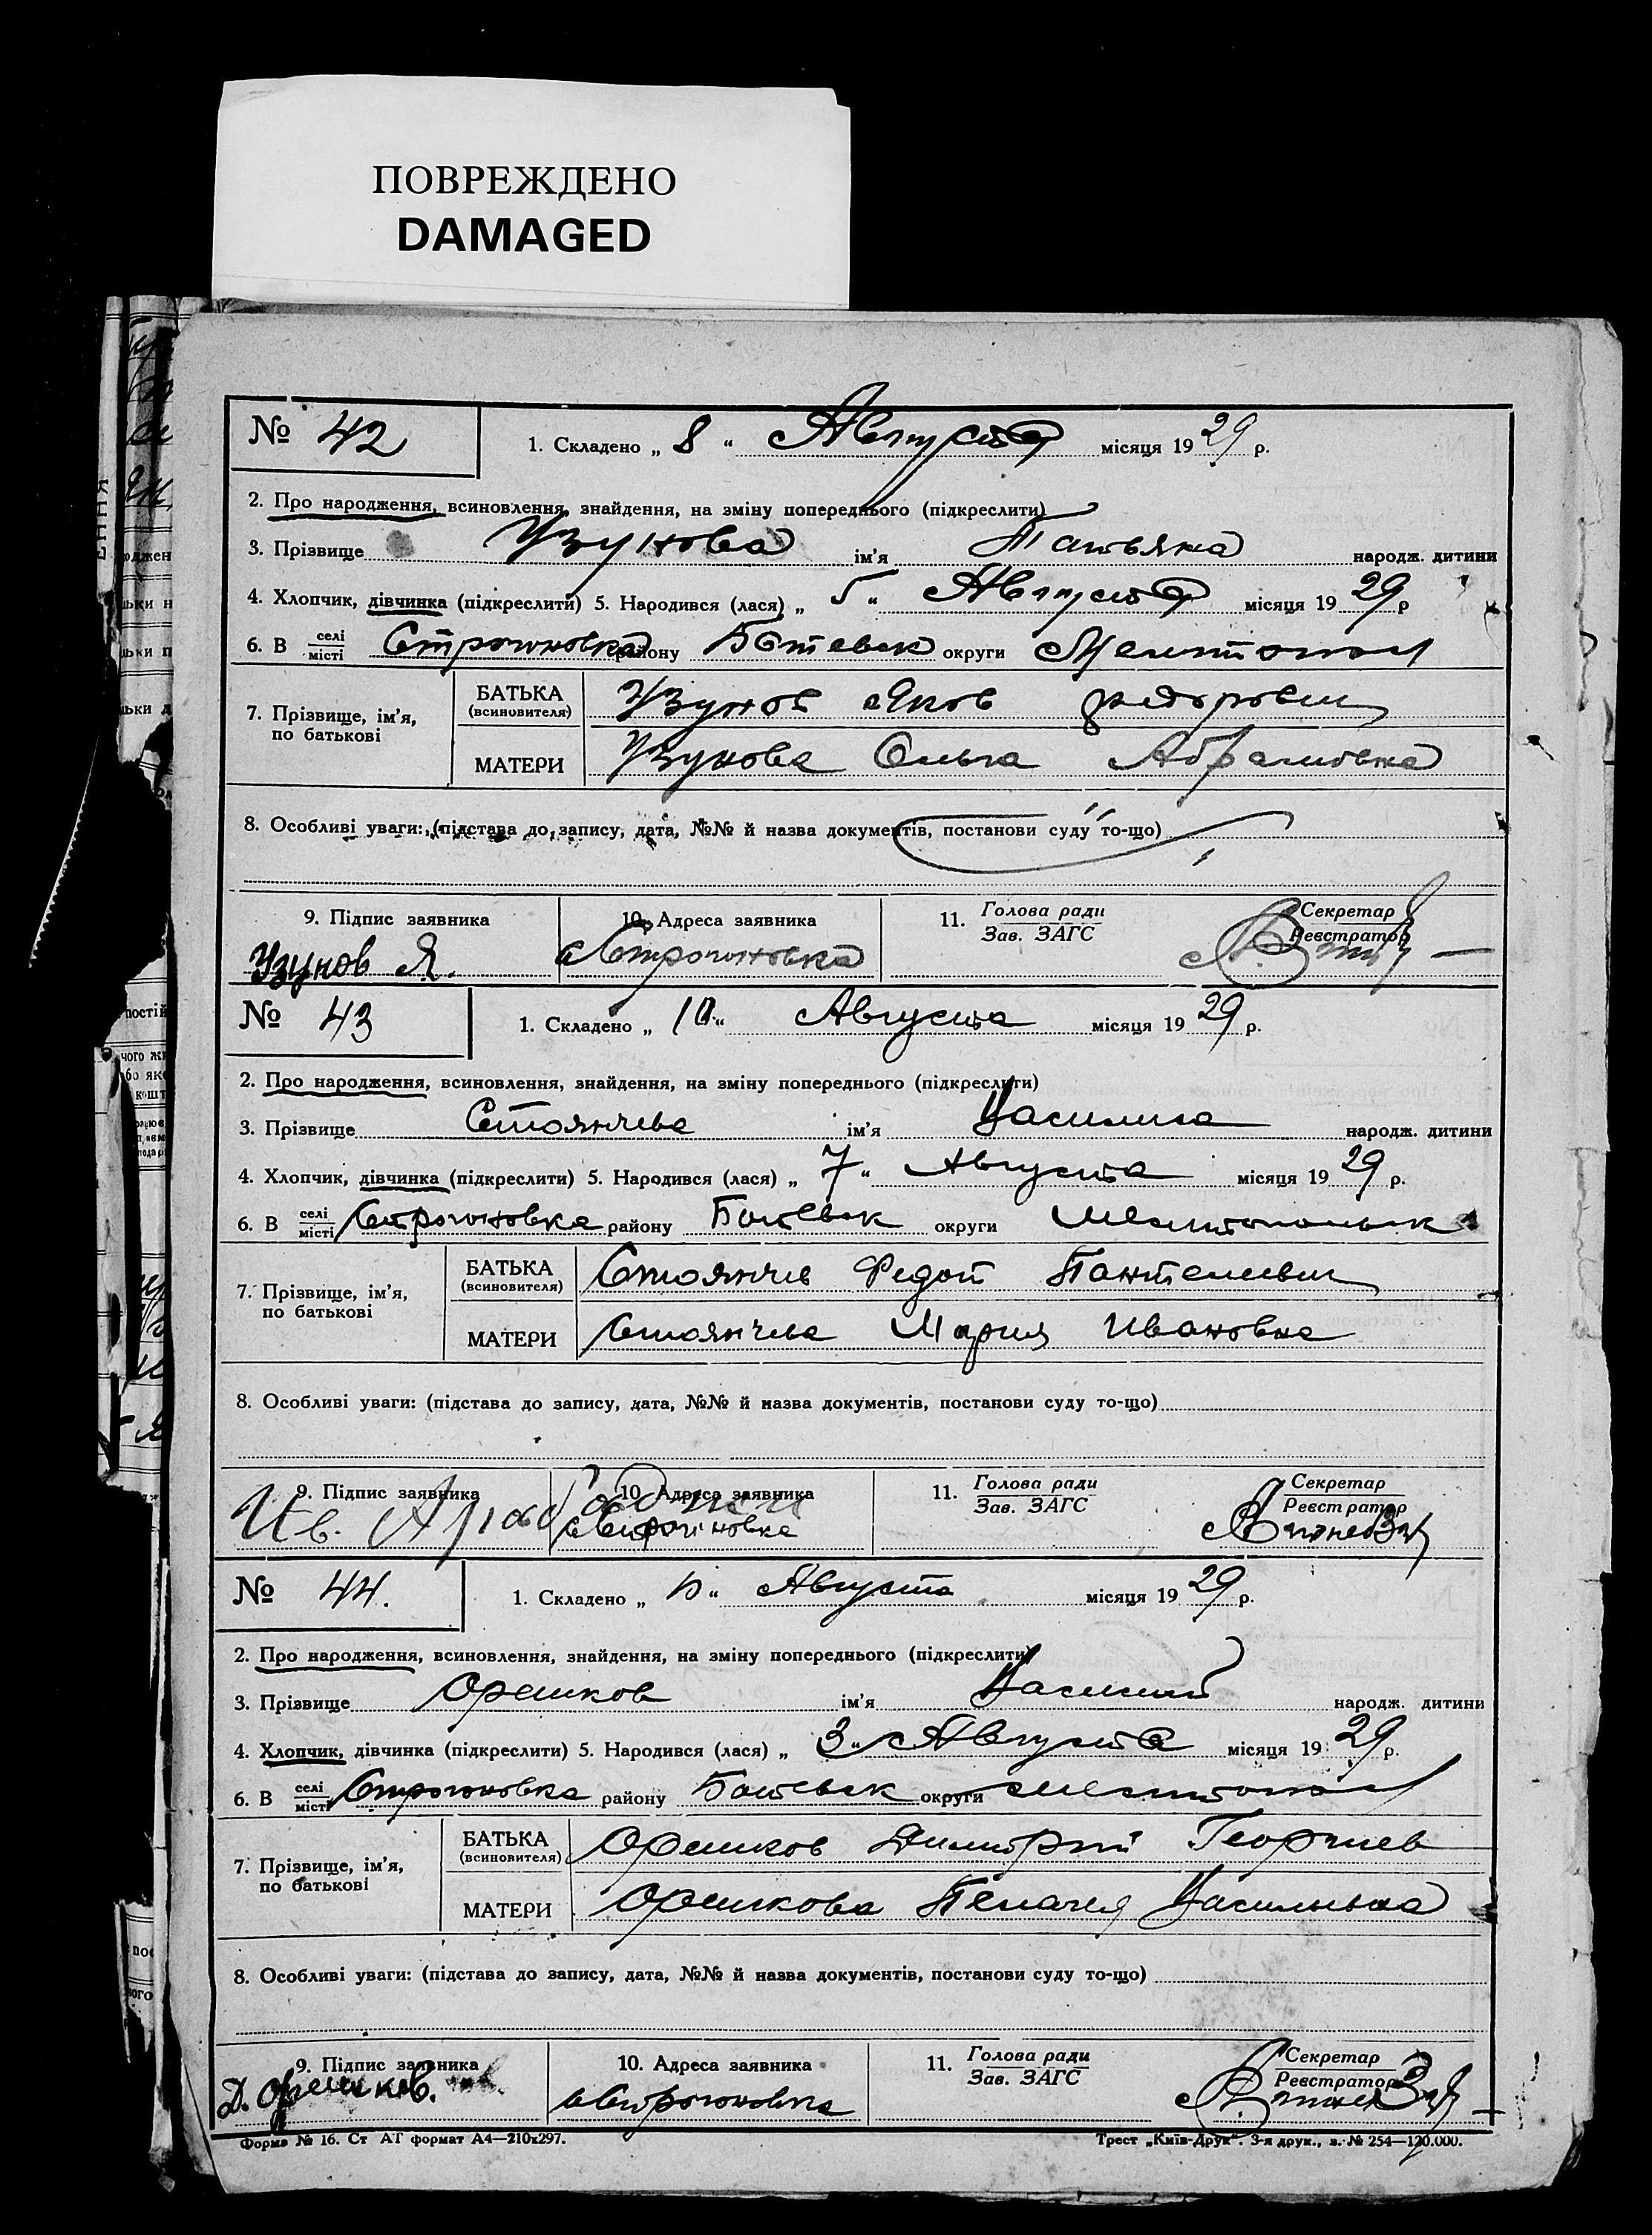 ПОВРЕЖДЕНО
DAMAGED
№ 42
1. Складено „ 8 “ Августа місяця 1929 р.
2. Про народження, всиновлення, знайдення, на зміну попереднього (підкреслити)
3. Прізвище Узунова ім'я Татьяна народж. дитини
4. Хлопчик, дівчинка (підкреслити) 5. Народився (лася) „ 5 “ Августа місяця 1929 р
6. В селі місті Строгоновка району Ботевск округи Мелитопол
7. Прізвище, ім'я, по батькові
БАТЬКА (всиновителя) Узунов Яков Федорович
МАТЕРИ Узунова Ольга Абрамовна
8. Особливі уваги: (підстава до запису, дата, №№ й назва документів, постанови суду то-що)
9. Підпис заявника 10. Адреса заявника 11. Голова ради Зав. ЗАГС Секретар Реєстратор
Узунов Я. Строгоновка
№ 43
1. Складено „ 10 “ Августа місяця 1929 р.
2. Про народження, всиновлення, знайдення, на зміну попереднього (підкреслити)
3. Прізвище Стоянчева ім'я Василиса народж. дитини
4. Хлопчик, дівчинка (підкреслити) 5. Народився (лася) „ 7 “ Августа місяця 1929 р.
6. В селі місті Строгоновка району Ботевск округи Мелитопольск
7. Прізвище, ім'я, по батькові
БАТЬКА (всиновителя) Стоянчев Федот Пантелеевич
МАТЕРИ Стоянчева Мария Ивановна
8. Особливі уваги: (підстава до запису, дата, №№ й назва документів, постанови суду то-що)
9. Підпис заявника 10. Адреса заявника 11. Голова ради Зав. ЗАГС Секретар Реєстратор
Ив. Строгоновка
№ 44.
1. Складено „ “ Августа місяця 1929 р.
2. Про народження, всиновлення, знайдення, на зміну попереднього (підкреслити)
3. Прізвище Орешков ім'я Василий народж. дитини
4. Хлопчик, дівчинка (підкреслити) 5. Народився (лася) „ 3 “ Августа місяця 1929 р.
6. В селі місті Строгоновка району Ботевск округи Мелитопол
7. Прізвище, ім'я, по батькові
БАТЬКА (всиновителя) Орешков Димитрий Георгиев
МАТЕРИ Орешкова Пелагея Васильевна
8. Особливі уваги: (підстава до запису, дата, №№ й назва документів, постанови суду то-що)
9. Підпис заявника 10. Адреса заявника 11. Голова ради Зав. ЗАГС Секретар Реєстратор
Д. Орешков. Строгоновка
Форма № 16. Ст АТ формат А4—210х297.
Трест „Київ-Друк“. 3-я друк., з. № 254—120.000.